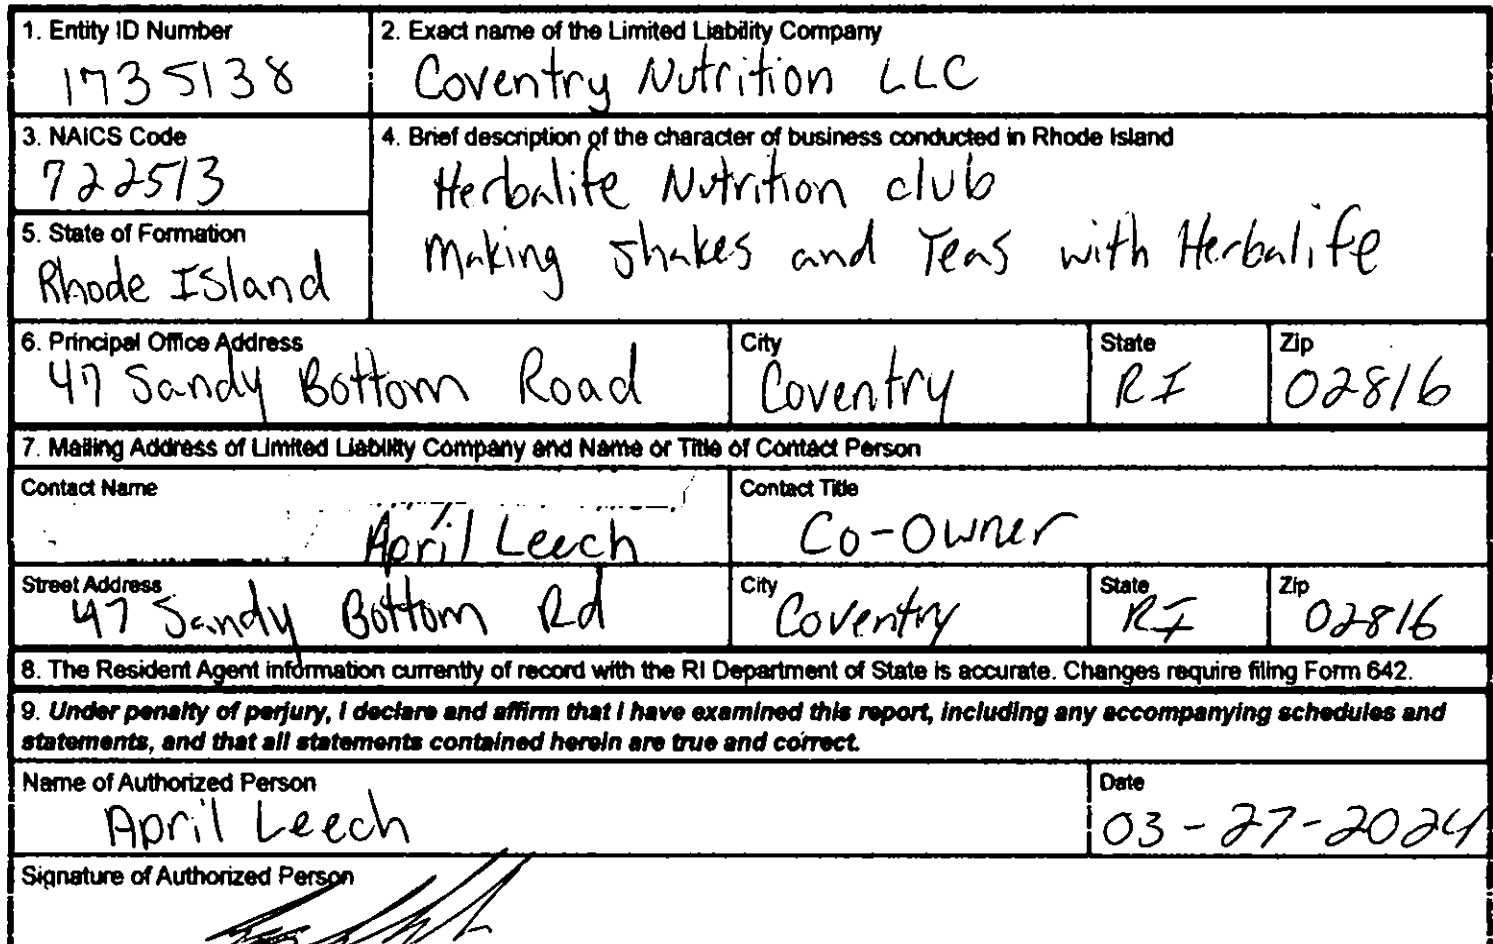 1. Entity ID Number
1735138
2. Exact name of the Limited Liability Company
Coventry Nutrition LLC
3. NAICS Code
722513
4. Brief description of the character of business conducted in Rhode Island
Herbalife Nutrition club
Making shakes and Teas with Herbalife
5. State of Formation
Rhode Island
6. Principal Office Address
47 Sandy Bottom Road
City
Coventry
State
RI
Zip
02816
7. Mailing Address of Limited Liability Company and Name or Title of Contact Person
Contact Name
April Leech
Contact Title
Co-Owner
Street Address
47 Sandy Bottom Rd
City
Coventry
State
RI
Zip
02816
8. The Resident Agent information currently of record with the RI Department of State is accurate. Changes require filing Form 642.
9. Under penalty of perjury, I declare and affirm that I have examined this report, including any accompanying schedules and
statements, and that all statements contained herein are true and correct.
Name of Authorized Person
April Leech
Date
03-27-2024
Signature of Authorized Person